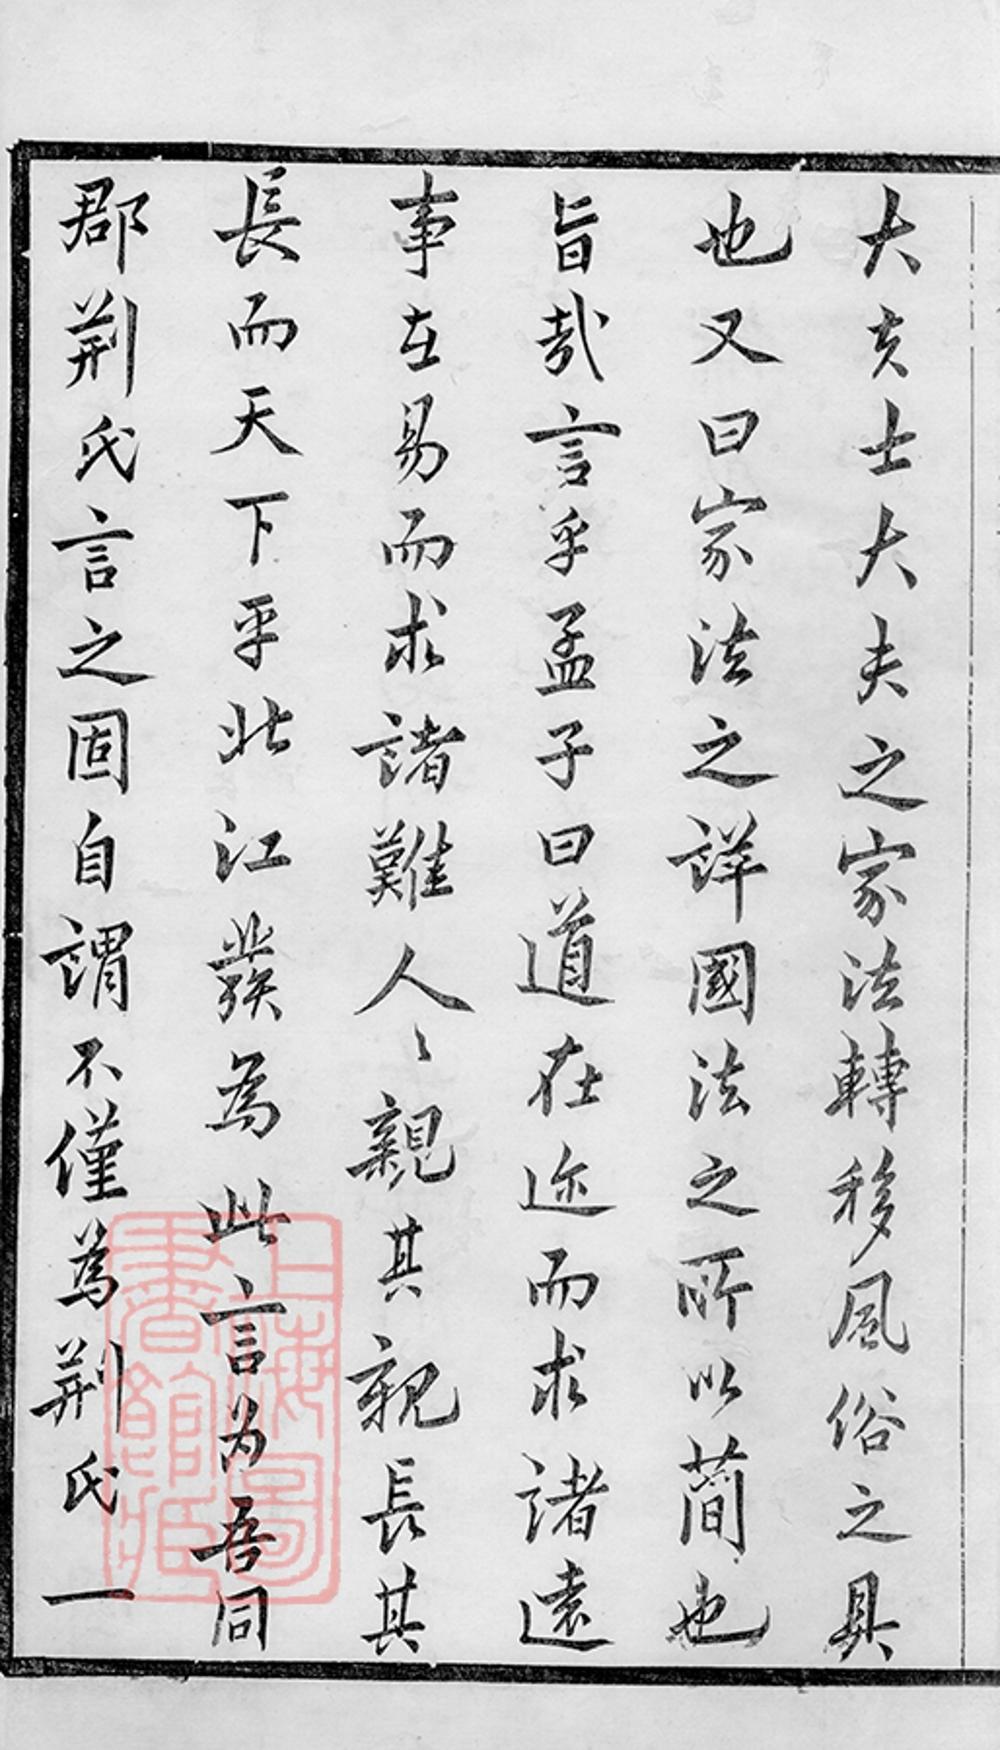 大夫士大夫之家法轉移風俗之具
也又曰家法之詳國法之所以簡也
旨哉言乎孟子曰道在迩而求諸遠
事在易而求諸難人〻親其親長其
長而天下平北江發為此言为吾同
郡荊氏言之固自謂不僅為荊氏一
上海圖
書館藏